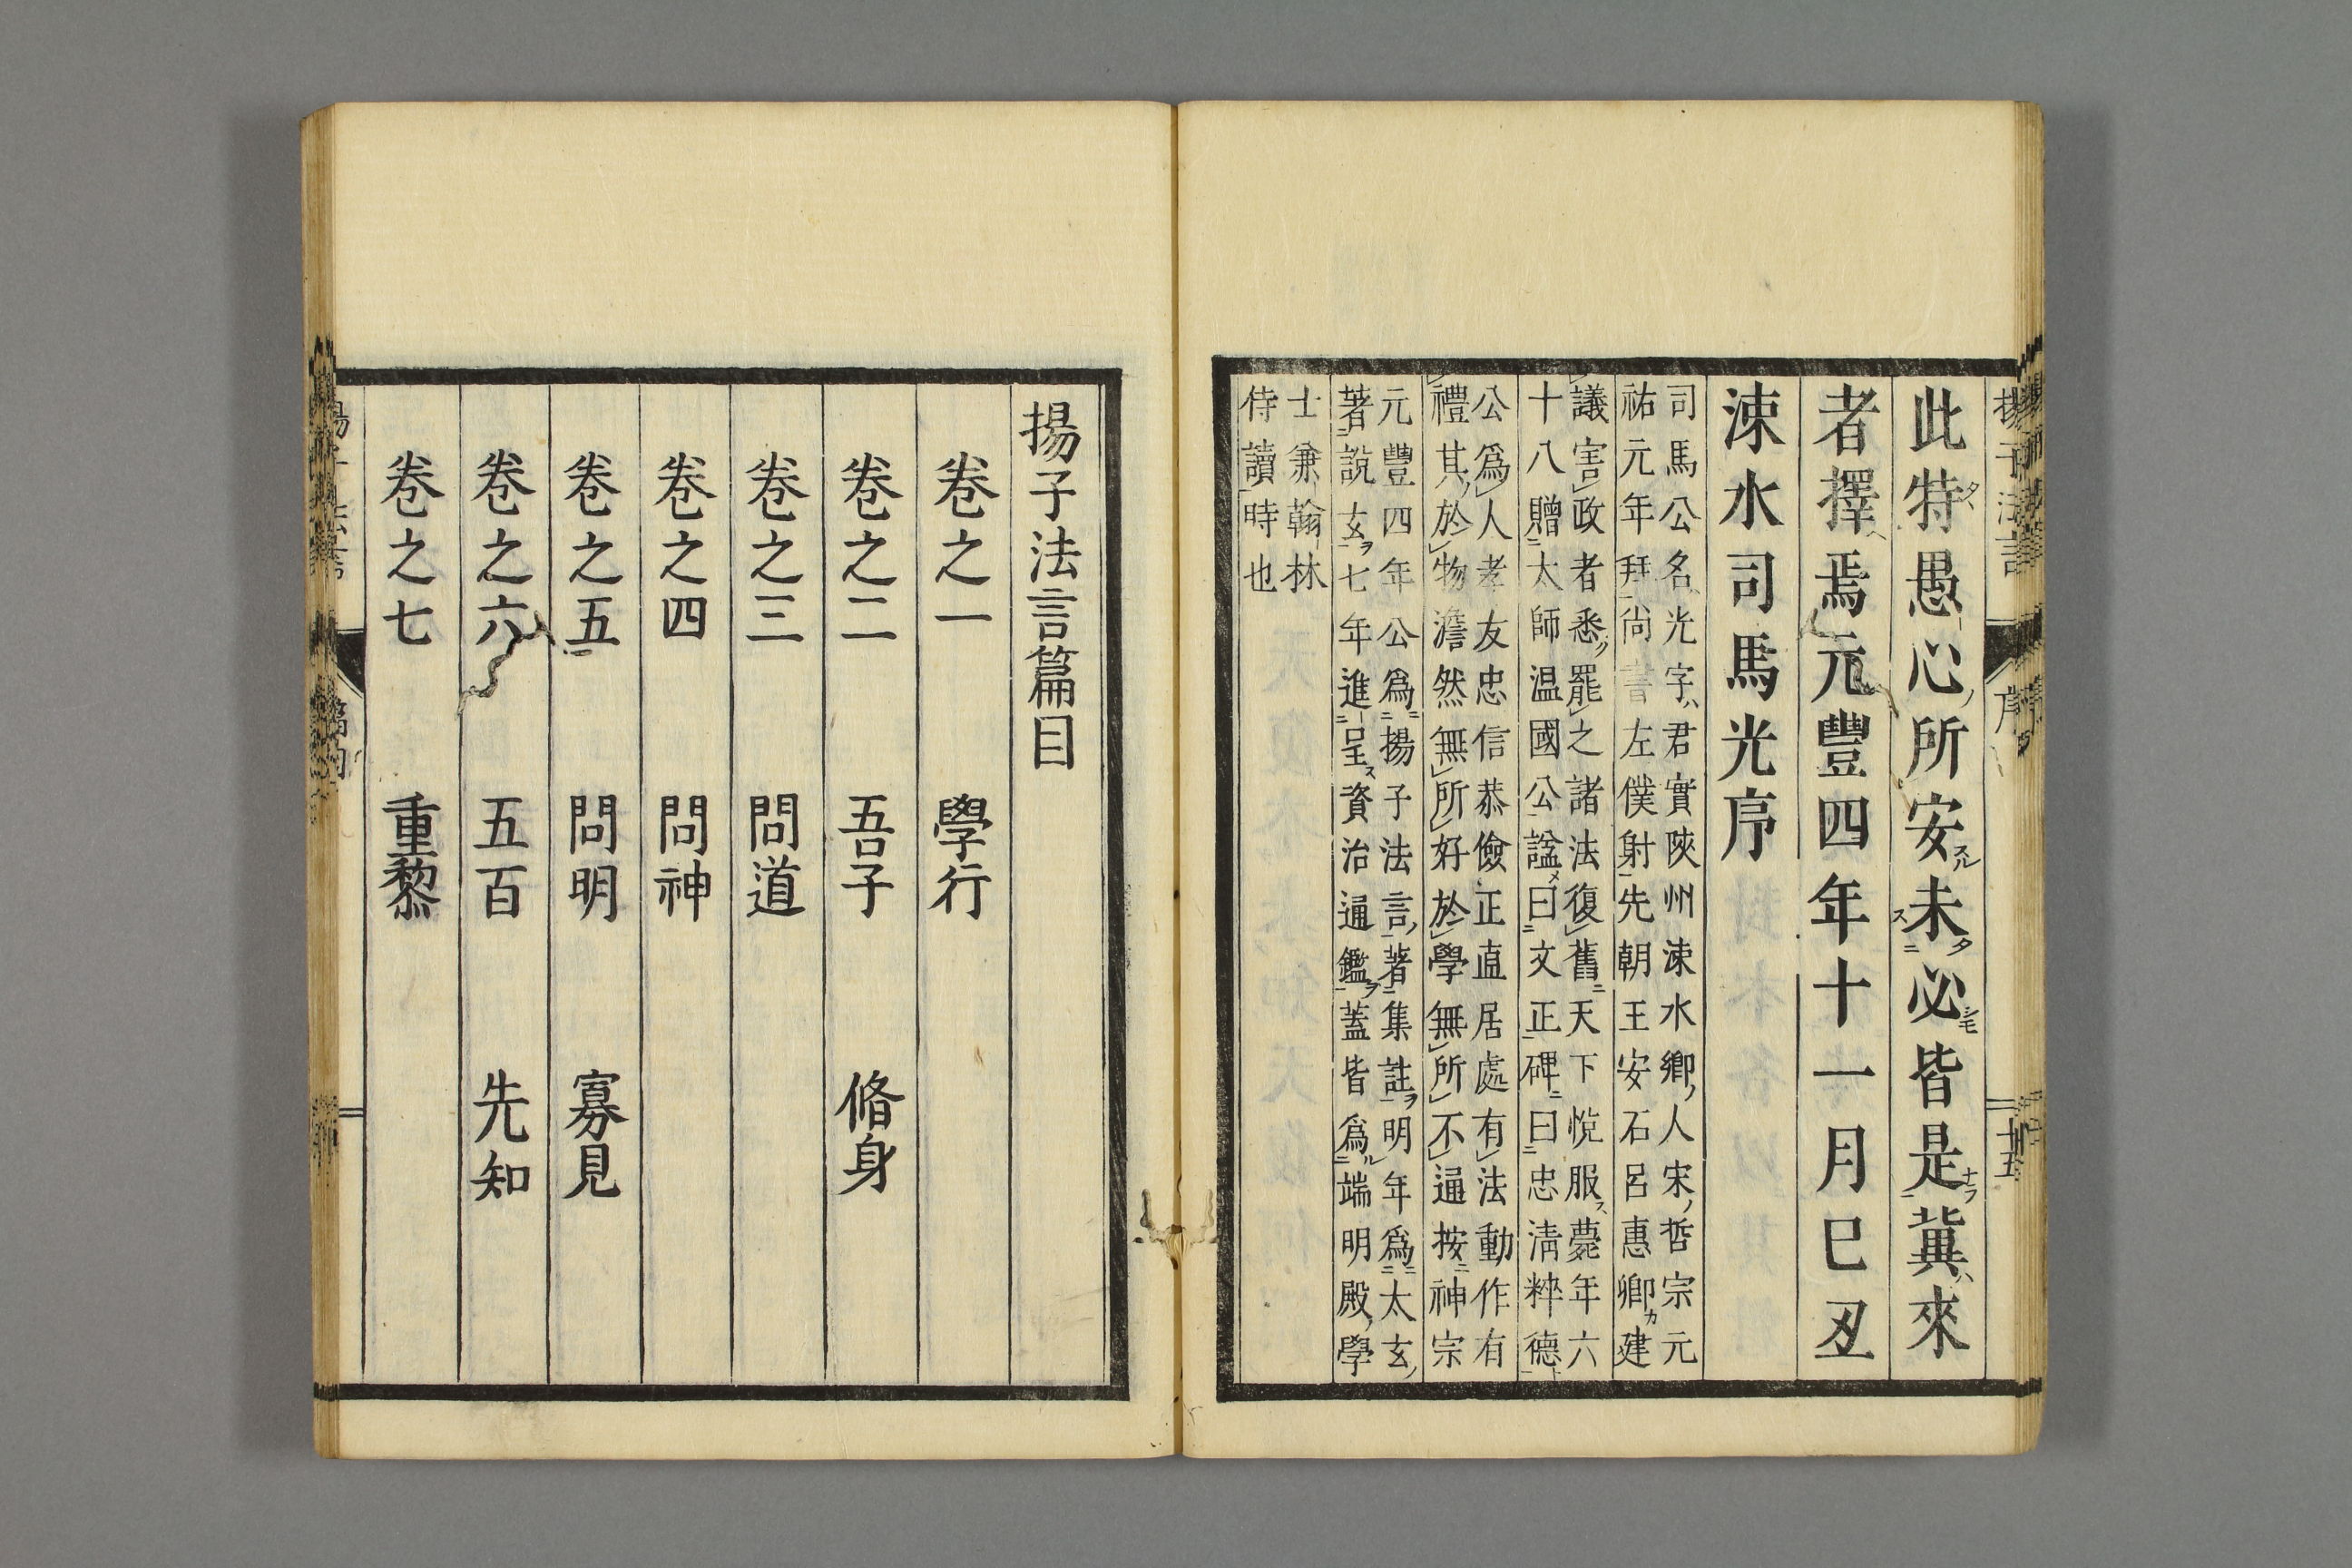 此特愚心所安未必皆是冀來
者擇焉元豐四年十一月己丑
涑水司馬光序
司馬公名光字君實陝州涑水鄉人宋哲宗元
祐元年拜尚書左僕射先朝王安石呂惠卿建
議害政者悉罷之諸法復舊天下悅服薨年六
十八贈太師温國公諡曰文正碑曰忠淸粹德
公爲人孝友忠信恭儉正直居處有法動作有
禮其於物澹然無所好於學無所不通按神宗
元豐四年公爲揚子法言著集註明年爲太玄
著說玄七年進呈資治通鑑蓋皆爲端明殿學
士兼翰林
侍讀時也
揚子法言篇目
卷之一 學行
卷之二 吾子 脩身
卷之三 問道
卷之四 問神
卷之五 問明 寡見
卷之六 五百 先知
卷之七 重黎